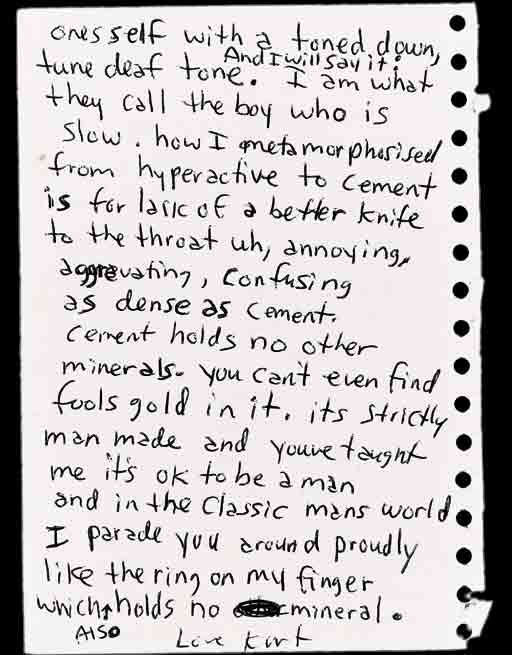 ones self with a toned down,
And I will say it!
tune deaf tone. I am what
they call the boy who is
slow. how I metamorphosised
from hyperactive to cement
is for lack of a better knife
to the throat uh, annoying,
aggravating, confusing
as dense as cement.
cement holds no other
minerals. you can't even find
fools gold in it. its strictly
man made and youve taught
me it's ok to be a man
and in the classic mans world
I parade you around proudly
like the ring on my finger
which holds no mineral.
Also
Love Kurt